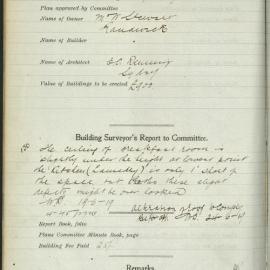 Plan approved by Committee
Name of Owner Mr W Stewart
Randwick
Name of Builder
Name of Architect
Sydney
Value of Buildings to be erected £900
Building Surveyor's Report to Committee.
The ceiling of Breakfast room is
slightly under the height at lowest point
the Kitchen (Laundry) is only 1 short of
the space these slight
defects might be over looked
19-6-19
Report Book, folio
Plans Committee Minute Book, page
Building Fee Paid 25/-
Remarks.